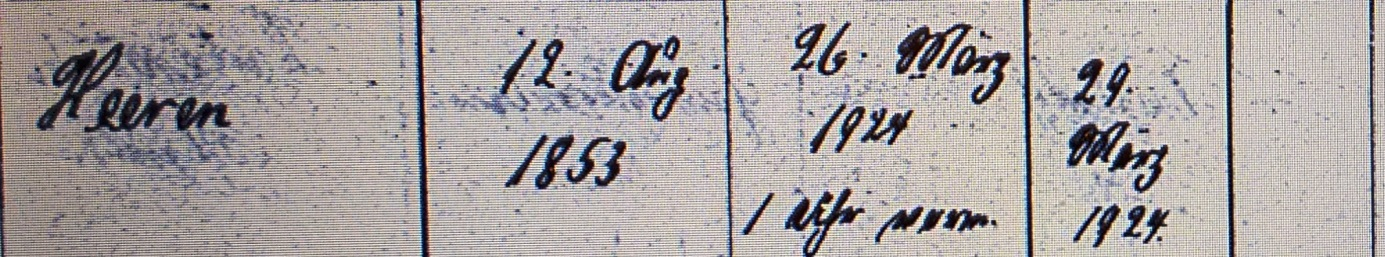 Heeren
12. Aug
1853
26. März
1924
1 Uhr vorm.
29.
März
1924.